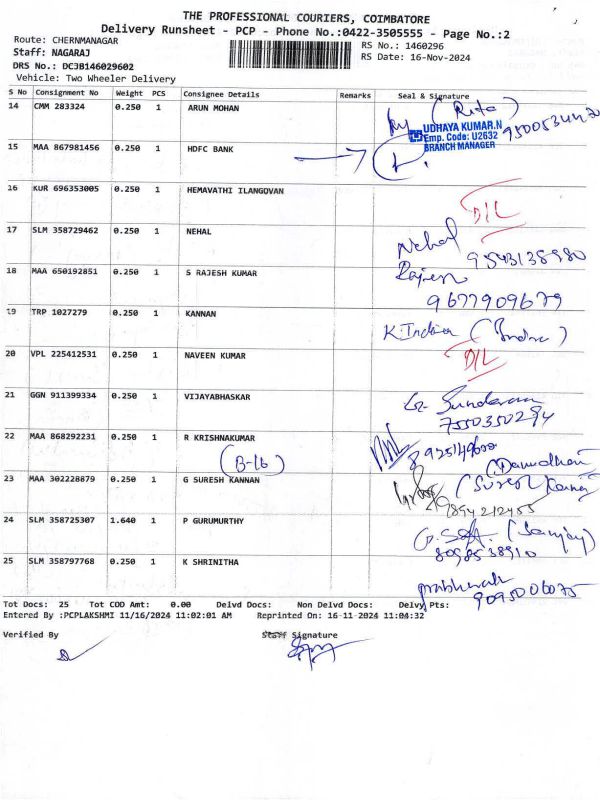 THE PROFESSIONAL COURIERS, COIMBATORE
Delivery Runsheet - PCP - Phone No.:0422-3505555 - Page No.:2
Route: CHERNMANAGAR
RS No.: 1460296
Staff: NAGARAJ
RS Date: 16-Nov-2024
DRS No.: DCJB146029602
Vehicle: Two Wheeler Delivery
S No Consignment No Weight PCS Consignee Details Remarks Seal & Signature
14 CMM 283324 0.250 1 ARUN MOHAN (Rita)
UDHAYA KUMAR.N
Emp. Code: U2632
BRANCH MANAGER
15 MAA 867981456 0.250 1 HDFC BANK
16 KUR 696353005 0.250 1 HEMAVATHI ILANGOVAN D/L
17 SLM 358729462 0.250 1 NEHAL Nehal 9543138980
18 MAA 650192851 0.250 1 S RAJESH KUMAR Rajesh
9677909679
19 TRP 1027279 0.250 1 KANNAN K. Indira (Indra)
20 VPL 225412531 0.250 1 NAVEEN KUMAR D/L
21 GGN 911399334 0.250 1 VIJAYABHASKAR Sundaram
7550350294
22 MAA 868292231 0.250 1 R KRISHNAKUMAR 8925149600
(B-16) (Damodhan)
23 MAA 302228879 0.250 1 G SURESH KANNAN (Suresh Kannan)
9894212455
24 SLM 358725307 1.640 1 P GURUMURTHY (Sanjay)
8098538910
25 SLM 358797768 0.250 1 K SHRINITHA
9095006075
Tot Docs: 25 Tot COD Amt: 0.00 Delvd Docs: Non Delvd Docs: Delvy Pts:
Entered By :PCPLAKSHMI 11/16/2024 11:02:01 AM Reprinted On: 16-11-2024 11:04:32
Verified By Staff Signature